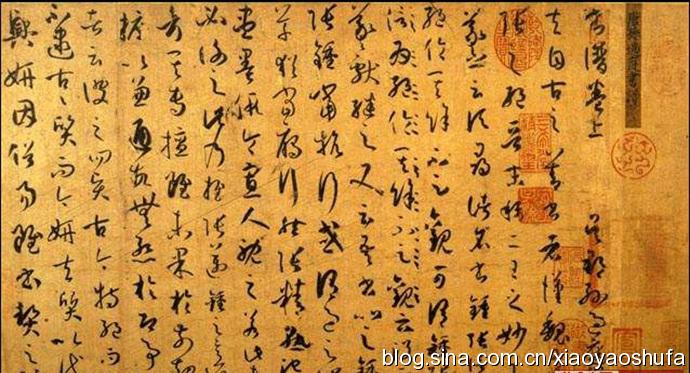 書譜卷上 吳郡孫過庭
夫自古之善書者漢魏
張之絕晉末稱二王之妙
羲之云頃尋諸名書鍾張
絕倫其餘不足觀可謂鍾
絕倫其餘不足觀云
羲獻繼之又云吾書比之鍾
張鍾當抗行或謂過之
草猶當雁行然張精熟池
盡墨假令寡人耽之若此
必謝之此乃推張邁鍾之意
考其專擅雖未果於前規
摭以兼通故無慚於即事
者云彼之四賢古今特絕而
不逮古古質而今妍夫質以代
興妍因俗易雖書契之
blog.sina.com.cn/xiaoyaoshufa